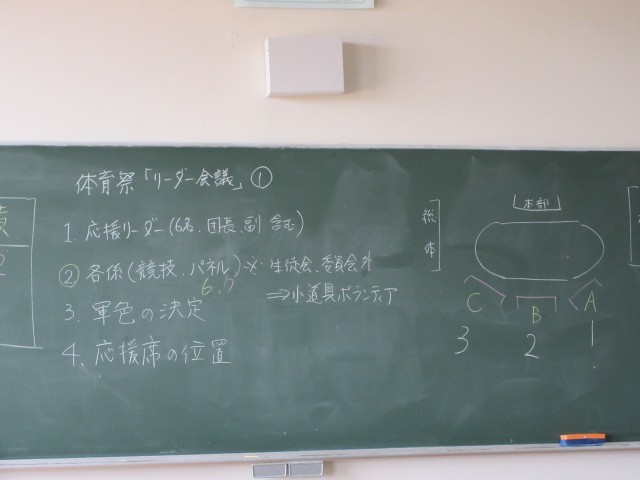 体育祭「リーダー会議」①
1. 応援リーダー(6名、団長、副 含む)
② 各係(競技、パネル)※生徒会、委員会外
⇒小道具ボランティア
3. 軍色の決定
4. 応援席の位置
本部
C
B
A
3
2
1